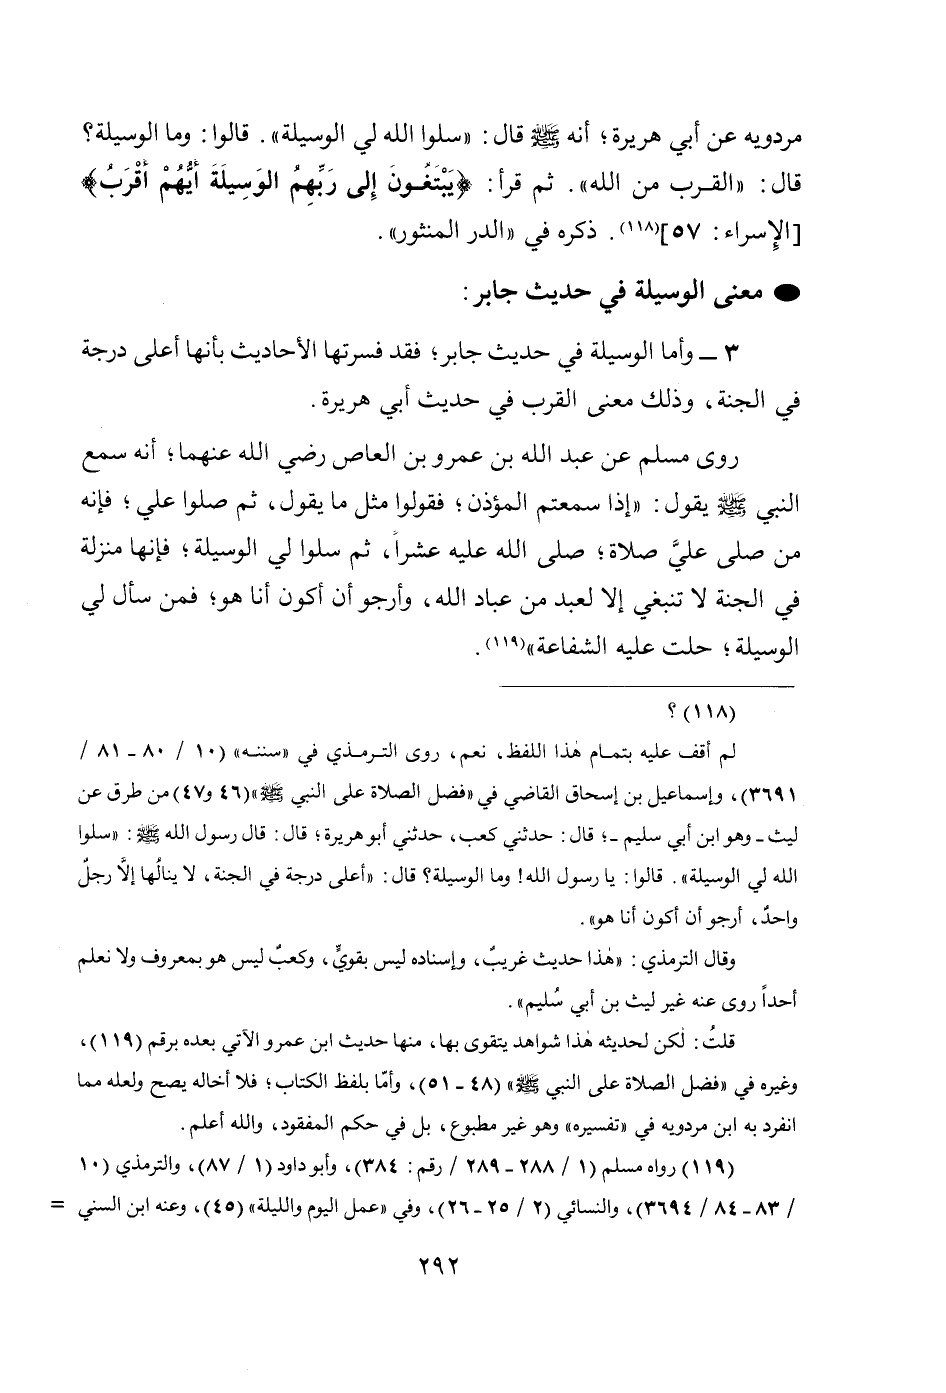 مردويه عن أبي هريرة؛ أنه ﷺ قال: «سلوا الله لي الوسيلة». قالوا: وما الوسيلة؟
قال: «القرب من الله». ثم قرأ: ﴿يَبْتَغُونَ إِلى رَبِّهِمُ الوَسِيلَةَ أَيُّهُمْ أَقْرَبُ﴾
[الإسراء: ٥٧](١١٨). ذكره في «الدر المنثور».
● معنى الوسيلة في حديث جابر:
٣ ـ وأما الوسيلة في حديث جابر؛ فقد فسرتها الأحاديث بأنها أعلى درجة
في الجنة، وذلك معنى القرب في حديث أبي هريرة.
روى مسلم عن عبد الله بن عمرو بن العاص رضي الله عنهما؛ أنه سمع
النبي ﷺ يقول: «إذا سمعتم المؤذن؛ فقولوا مثل ما يقول، ثم صلوا علي؛ فإنه
من صلى عليَّ صلاة؛ صلى الله عليه عشراً، ثم سلوا لي الوسيلة؛ فإنها منزلة
في الجنة لا تنبغي إلا لعبد من عباد الله، وأرجو أن أكون أنا هو؛ فمن سأل لي
الوسيلة؛ حلت عليه الشفاعة»(١١٩).
(١١٨) ؟
لم أقف عليه بتمام هٰذا اللفظ، نعم، روى الترمذي في «سننه» (١٠ / ٨٠ ـ ٨١ /
٣٦٩١)، وإسماعيل بن إسحاق القاضي في «فضل الصلاة على النبي ﷺ»(٤٦ و٤٧) من طرق عن
ليث ـ وهو ابن أبي سليم ـ؛ قال: حدثني كعب، حدثني أبو هريرة؛ قال: قال رسول الله ﷺ: «سلوا
الله لي الوسيلة». قالوا: يا رسول الله! وما الوسيلة؟ قال: «أعلى درجة في الجنة، لا ينالُها إلَّا رجلٌ
واحدٌ، أرجو أن أكون أنا هو».
وقال الترمذي: «هٰذا حديث غريبٌ، وإسناده ليس بقويٍّ، وكعبٌ ليس هو بمعروف ولا نعلم
أحداً روى عنه غير ليث بن أبي سُليم».
قلتُ: لٰكن لحديثه هٰذا شواهد يتقوى بها، منها حديث ابن عمرو الآتي بعده برقم (١١٩)،
وغيره في «فضل الصلاة على النبي ﷺ» (٤٨ ـ ٥١)، وأمّا بلفظ الكتاب؛ فلا أخاله يصح ولعله مما
انفرد به ابن مردويه في «تفسيره» وهو غير مطبوع، بل في حكم المفقود، والله أعلم.
(١١٩) رواه مسلم (١ / ٢٨٨ ـ ٢٨٩ / رقم: ٣٨٤)، وأبو داود (١ / ٨٧)، والترمذي (١٠
/ ٨٣ ـ ٨٤ / ٣٦٩٤)، والنسائي (٢ / ٢٥ ـ ٢٦)، وفي «عمل اليوم والليلة» (٤٥)، وعنه ابن السني =
٢٩٢